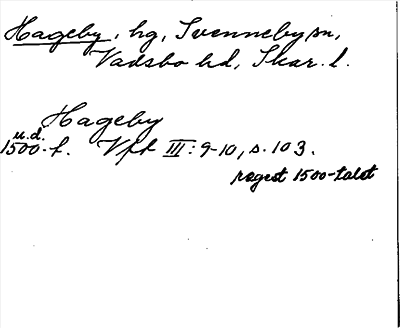 Hageby, hg, Svenneby sn,
Vadsbo hd, Skar. l.
Hageby
u.d.
1500-t. Vft III: 9-10, s. 103.
regest 1500-talet